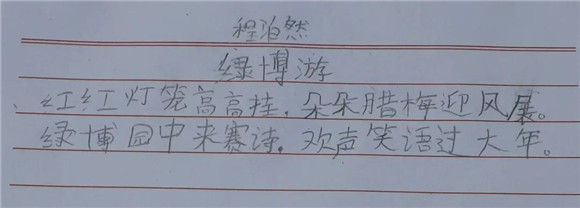 程泊然
绿博游
红红灯笼高高挂，朵朵腊梅迎风展。
绿博园中来赛诗，欢声笑语过大年。